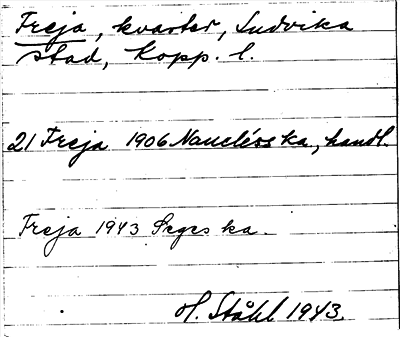 Freja, kvarter, Ludvika
stad, Kopp. l.
21 Freja 1906 Nauclérs ka, handl.
Freja 1943 Seges ka.
H. Ståhl 1943.